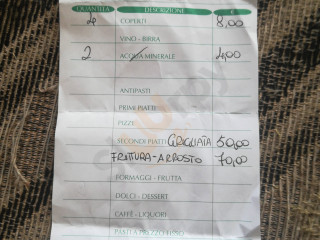 QUANTITÀ DESCRIZIONE €
4 COPERTI 8,00
VINO - BIRRA
2 ACQUA MINERALE 4,00
ANTIPASTI
PRIMI PIATTI
PIZZE
SECONDI PIATTI GRIGLIATA 50,00
FRITTURA-ARROSTO 70,00
FORMAGGI - FRUTTA
DOLCI - DESSERT
CAFFÈ - LIQUORI
PASTI A PREZZO FISSO